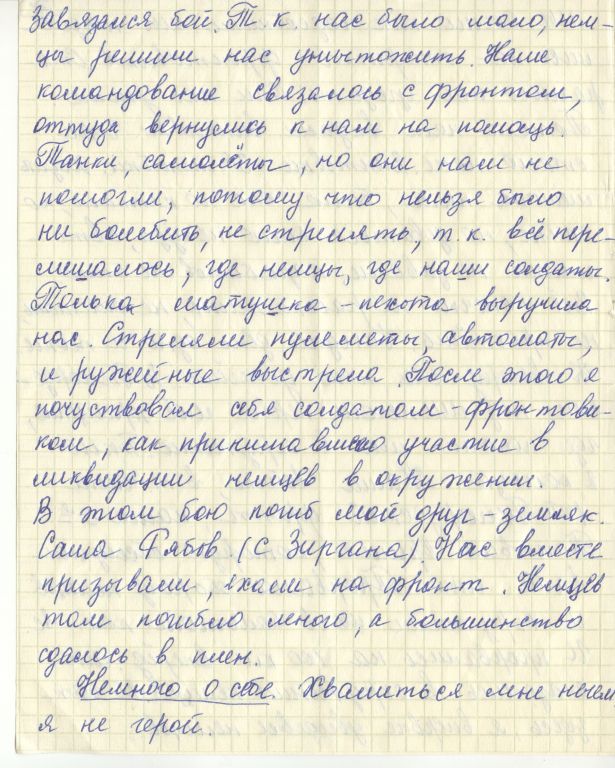 Завязался бой. Т. к. нас было мало, нем-
цы решили нас уничтожить. Наше
командование связалось с фронтом,
оттуда вернулись к нам на помощь.
Танки, самолёты, но они нам не
помогли, потому что нельзя было
ни бомбить, не стрелять, т. к. всё пере-
мешалось, где немцы, где наши солдаты.
Только матушка-пехота выручила
нас. Стреляли пулеметы, автоматы,
и ружейные выстрела. После этого я
почуствовал себя солдатом-фронтови-
ком, как принимавшего участие в
ликвидации немцев в окружении.
В этом бою погиб мой друг-земляк.
Саша Рябов (с Зиргана). Нас вместе
призывали, ехали на фронт. Немцев
там погибло много, а большинство
сдалось в плен.
Немного о себе. Хвалиться мне нечем
я не герой.